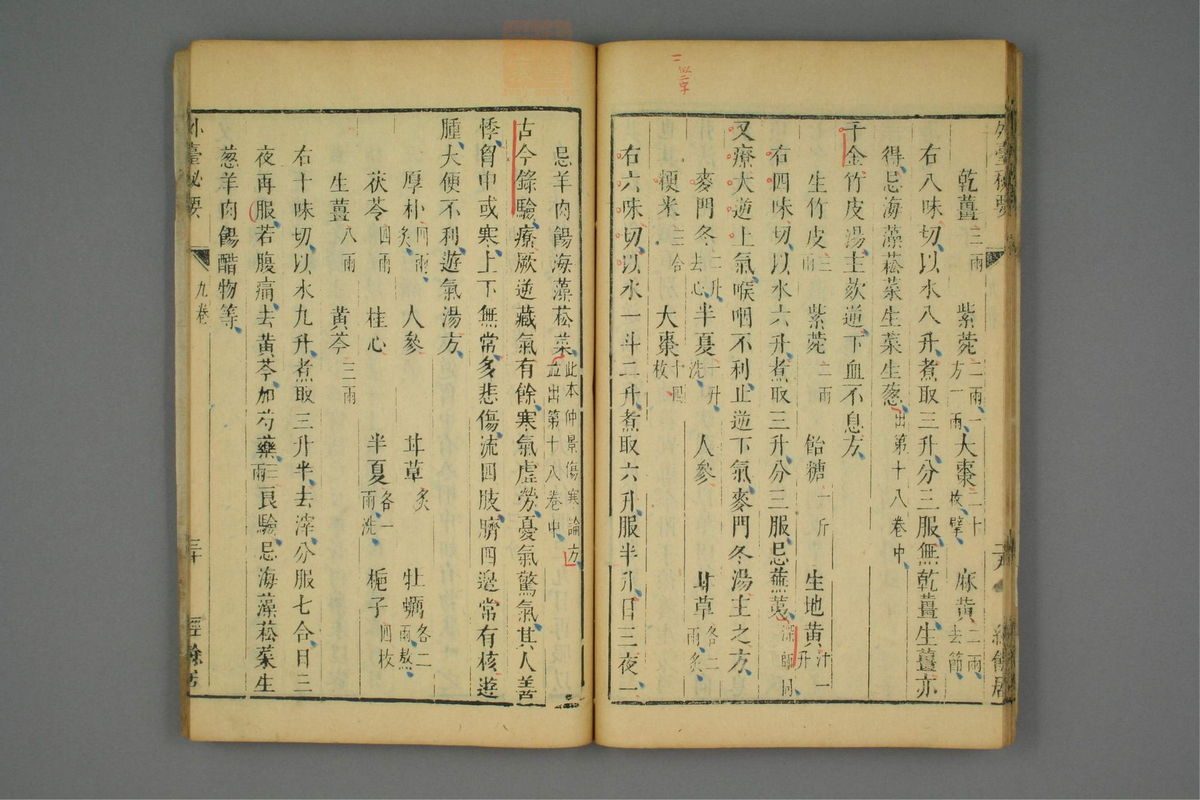 乾薑三兩 紫菀二兩一方一兩 大棗二十枚擘 麻黃二兩去節
右八味切以水八升煮取三升分三服無乾薑生薑亦
得忌海藻菘菜生菜生葱出第十八卷中
千金竹皮湯主欬逆下血不息方
生竹皮三兩 紫菀二兩 飴糖一斤 生地黃汁一升
右四味切以水六升煮取三升分三服忌蕪荑深師同
又療大逆上氣喉咽不利止逆下氣麥門冬湯主之方
麥門冬二升去心 半夏一升洗 人參 甘草各二兩炙
粳米三合 大棗十四枚
右六味切以水一斗二升煮取六升服半升日三夜一
忌羊肉餳海藻菘菜此本仲景傷寒論方並出第十八卷中
古今錄驗療厥逆藏氣有餘寒氣虛勞憂氣驚氣其人善
悸胷中或寒上下無常多悲傷流四肢臍四邊常有核遊
腫大便不利遊氣湯方
厚朴四兩炙 人參 甘草炙 牡蠣各二兩熬
茯苓四兩 桂心 半夏各一兩洗 梔子四枚
生薑八兩 黃芩三兩
右十味切以水九升煮取三升半去滓分服七合日三
夜再服若腹痛去黃芩加芍藥三兩良驗忌海藻菘菜生
葱羊肉餳醋物等
外臺秘要 九卷 三十 經餘居